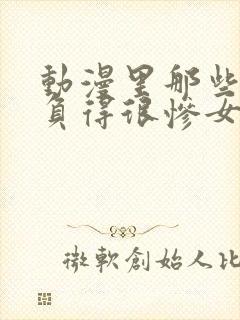 動漫里那些
負得很慘女
微軟創始人比